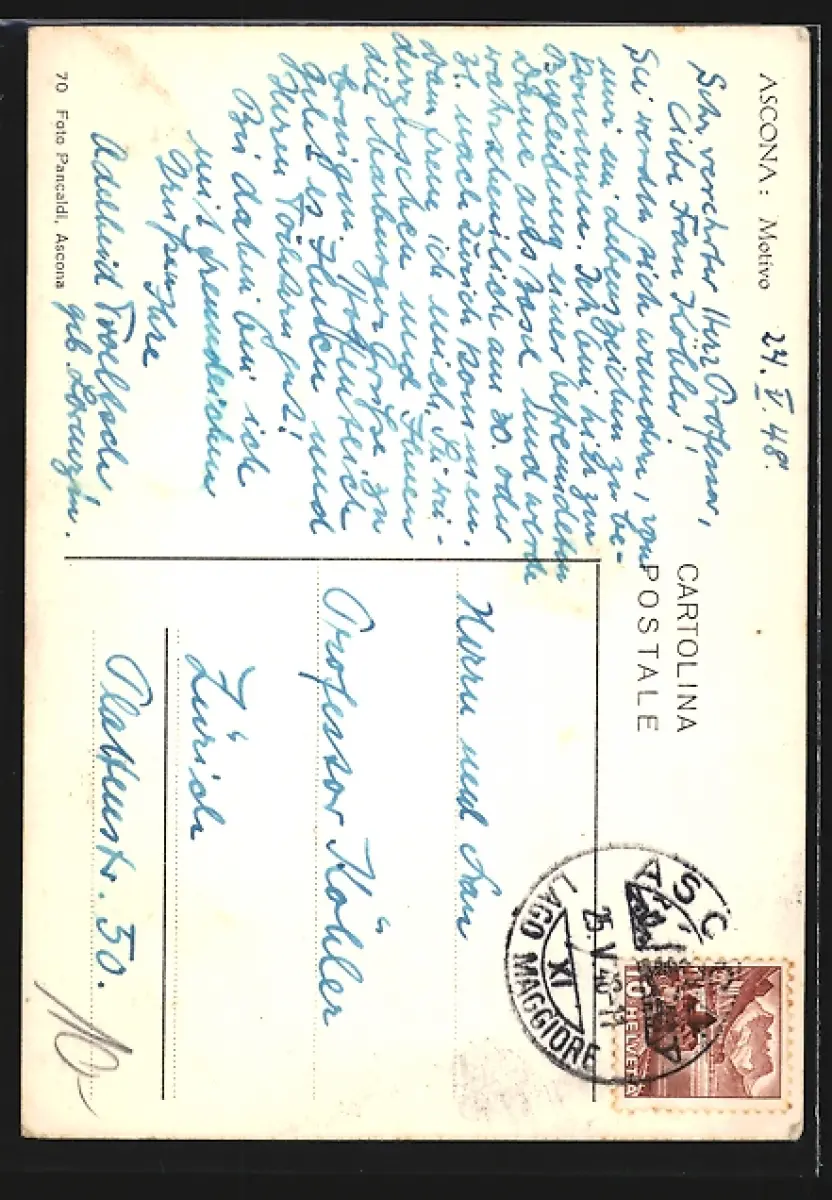 ASCONA: Motivo
24. V. 48.
Sehr verehrter Herr Professor,
Liebe Frau Köhler,
Sie werden sich wundern, von
mir ein Lebenszeichen zu be-
kommen. Ich bin hier zur
Begleitung einer befreundeten
Dame aus Basel und werde
wahrscheinlich am 30. oder
31. nach Zürich kommen.
Dann freu ich mich, Sie wi-
derzusehen und Ihnen
die Marburger Grüße zu
bringen. Hoffentlich
geht es Ihnen und
Ihren Töchtern gut!
Bis dahin bin ich
mit freundlichen
Grüßen Ihre
Adelheid
geb.
70 Foto Pancaldi, Ascona
CARTOLINA
POSTALE
Herrn und Frau
Professor Köhler
Zürich
Plattenstr. 50.
ASCONA
25. V. 48-11
XI
LAGO MAGGIORE
10 HELVETIA
10-